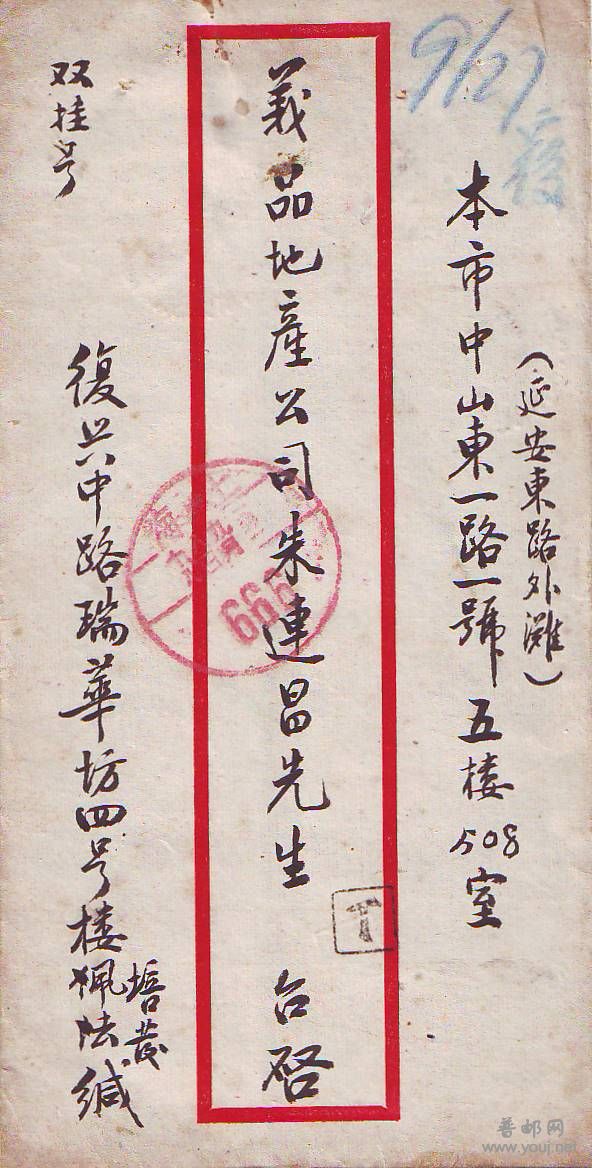 9/27
发
(延安東路外灘)
本市中山東一路一號五楼508室
義品地產公司司朱連昌先生 台啓
上海
666
T
双挂号
復兴中路瑞華坊四号楼佩法缄
培发
普邮网
www.youj.net